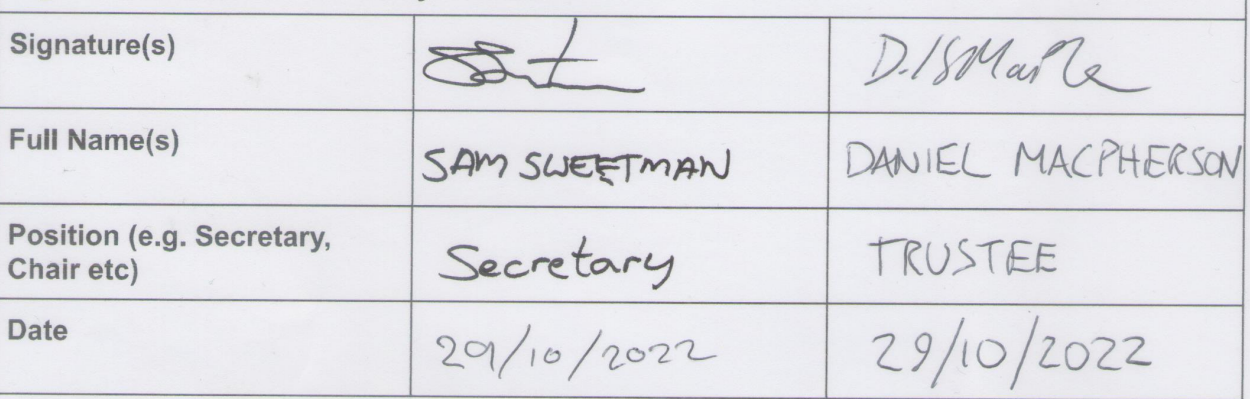 Signature(s)
Full Name(s) SAM SWEETMAN DANIEL MACPHERSON
Position (e.g. Secretary,
Chair etc) Secretary TRUSTEE
Date 29/10/2022 29/10/2022